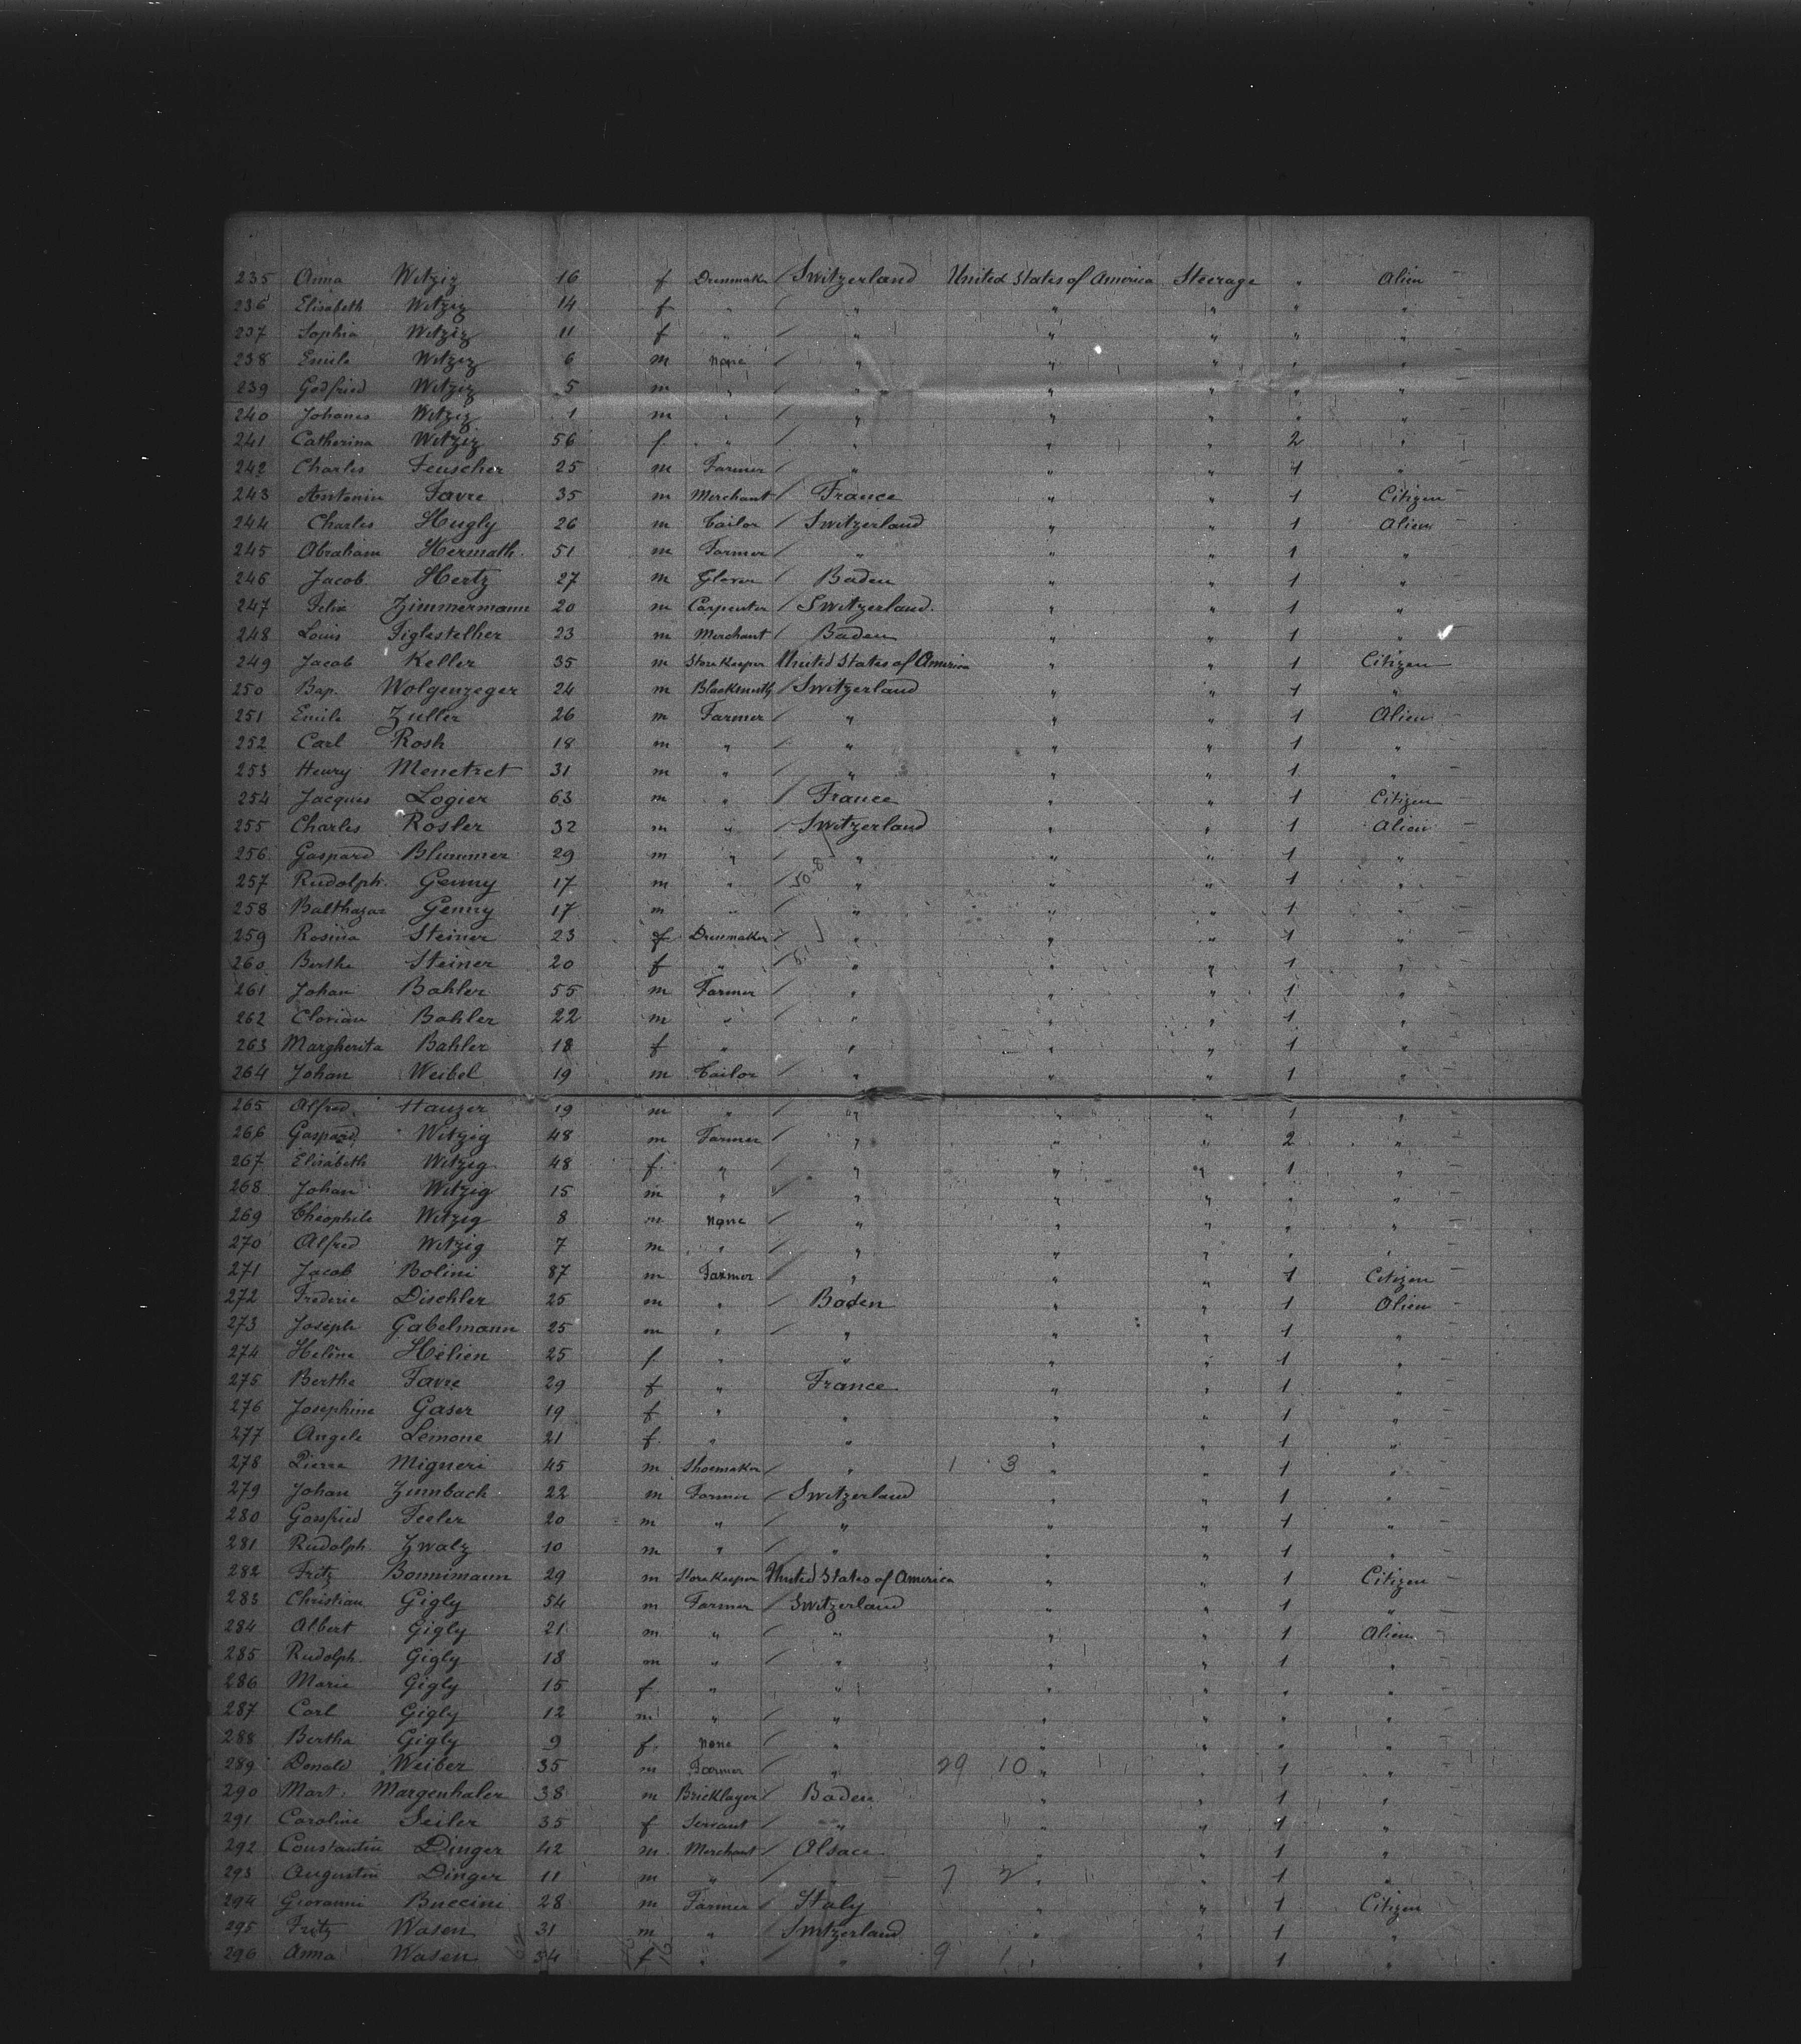 235 Anna Witzig 16 f Dressmaker / Switzerland United States of America Steerage " Alien -
236 Elisabeth Witzig 14 f " / " " " " " -
237 Sophia Witzig 11 f " / " " " " " -
238 Emile Witzig 6 m None / " " " " " -
239 Godfried Witzig 5 m " / " " " " " -
240 Johanes Witzig 1 m " / " " " " " -
241 Catherina Witzig 56 f " / " " " 2 " -
242 Charles Feuscher 25 m Farmer / " " " 1 " -
243 Antonin Favre 35 m Merchant / France " " 1 Citizen -
244 Charles Hugly 26 m Tailor / Switzerland " " 1 Alien -
245 Abraham Hermath 51 m Farmer / " " " 1 " -
246 Jacob Hertz 27 m Glover / Baden " " 1 " -
247 Felix Zimmermann 20 m Carpenter / Switzerland " " 1 " -
248 Louis Figlestelher 23 m Merchant / Baden " " 1 "
249 Jacob Keller 35 m Store Keeper United States of America " " 1 Citizen -
250 Bap. Wolgenzeger 24 m Blacksmith / Switzerland " " 1 " -
251 Emile Zuller 26 m Farmer / " " " 1 Alien -
252 Carl Rosh 18 m " / " " " 1 " -
253 Henry Menetret 31 m " / " " " 1 " -
254 Jacques Logier 63 m " / France " " 1 Citizen -
255 Charles Rosler 32 m " / Switzerland " " 1 Alien -
256 Gaspard Blummer 29 m " / " " " 1 " -
257 Rudolph Genny 17 m " / " " " 1 " -
258 Balthazar Genny 17 m " / " " " 1 " -
259 Rosina Steiner 23 f Dressmaker / " " " 1 " -
260 Bertha Steiner 20 f " / " " " 1 " -
261 Johan Bahler 55 m Farmer / " " " 1 " -
262 Clorian Bahler 22 m " / " " " 1 " -
263 Margherita Bahler 18 f " / " " " 1 " -
264 Johan Weibel 19 m Tailor / " " " 1 " -
265 Alfred Hauzer 19 m " / " " " 1 " -
266 Gaspard Witzig 48 m Farmer / " " " 2 " -
267 Elisabeth Witzig 48 f " / " " " 1 " -
268 Johan Witzig 15 m " / " " " " " -
269 Théophile Witzig 8 m None / " " " " " -
270 Alfred Witzig 7 m " / " " " " " -
271 Jacob Bolini 87 m Farmer / " " " 1 Citizen -
272 Frederic Dischler 25 m " / Baden " " 1 Alien -
273 Joseph Gabelmann 25 m " / " " " 1 " -
274 Helène Hélien 25 f " " " " 1 " -
275 Berthe Favre 29 f " France " " 1 " -
276 Josephine Gaser 19 f " " " " 1 " -
277 Angele Lemone 21 f " " " " 1 " -
278 Pierre Migneri 45 m Shoemaker / " 1 3 " " 1 " -
279 Johan Zumbach 22 m Farmer / Switzerland " " 1 " -
280 Gonfried Feeler 20 m " / " " " 1 " -
281 Rudolph Zwalz 10 m " / " " " 1 " -
282 Fritz Bonnimann 29 m Store Keeper United States of America " " 1 Citizen -
283 Christian Gigly 54 m Farmer / Switzerland " " 1 " -
284 Albert Gigly 21 m " / " " " 1 Alien -
285 Rudolph Gigly 18 m " / " " " 1 " -
286 Marie Gigly 15 f " / " " " " " -
287 Carl Gigly 12 m " / " " " " " -
288 Bertha Gigly 9 f None / " " " " " -
289 Donald Weiber 35 m Farmer / " 29 10 " " 1 " -
290 Mart. Margenhaler 38 m Bricklayer / Baden " " 1 " -
291 Caroline Seiler 35 f Servant / " " " 1 " -
292 Constantin Dinger 42 m Merchant / Alsace " " 1 " -
293 Augustin Dinger 11 m " / " 7 2 " " 1 " -
294 Giovanni Buccini 28 m Farmer / Italy " " 1 Citizen -
295 Fritz Wasen 31 m " / Switzerland " " 1 " -
296 Anna Wasen 34 f " / " 9 1 " " 1 " -